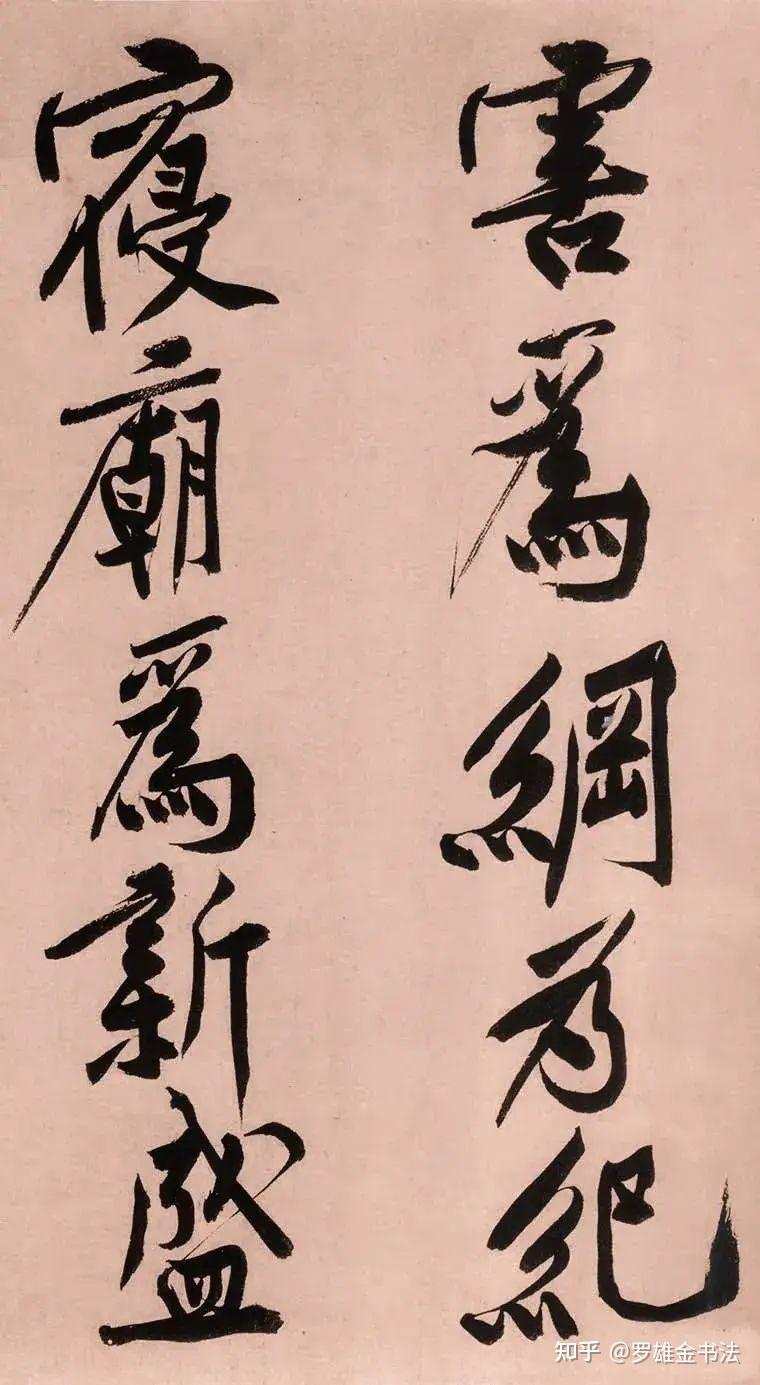 害爲綱为紀
寢廟爲新盛
知乎 @罗雄金书法